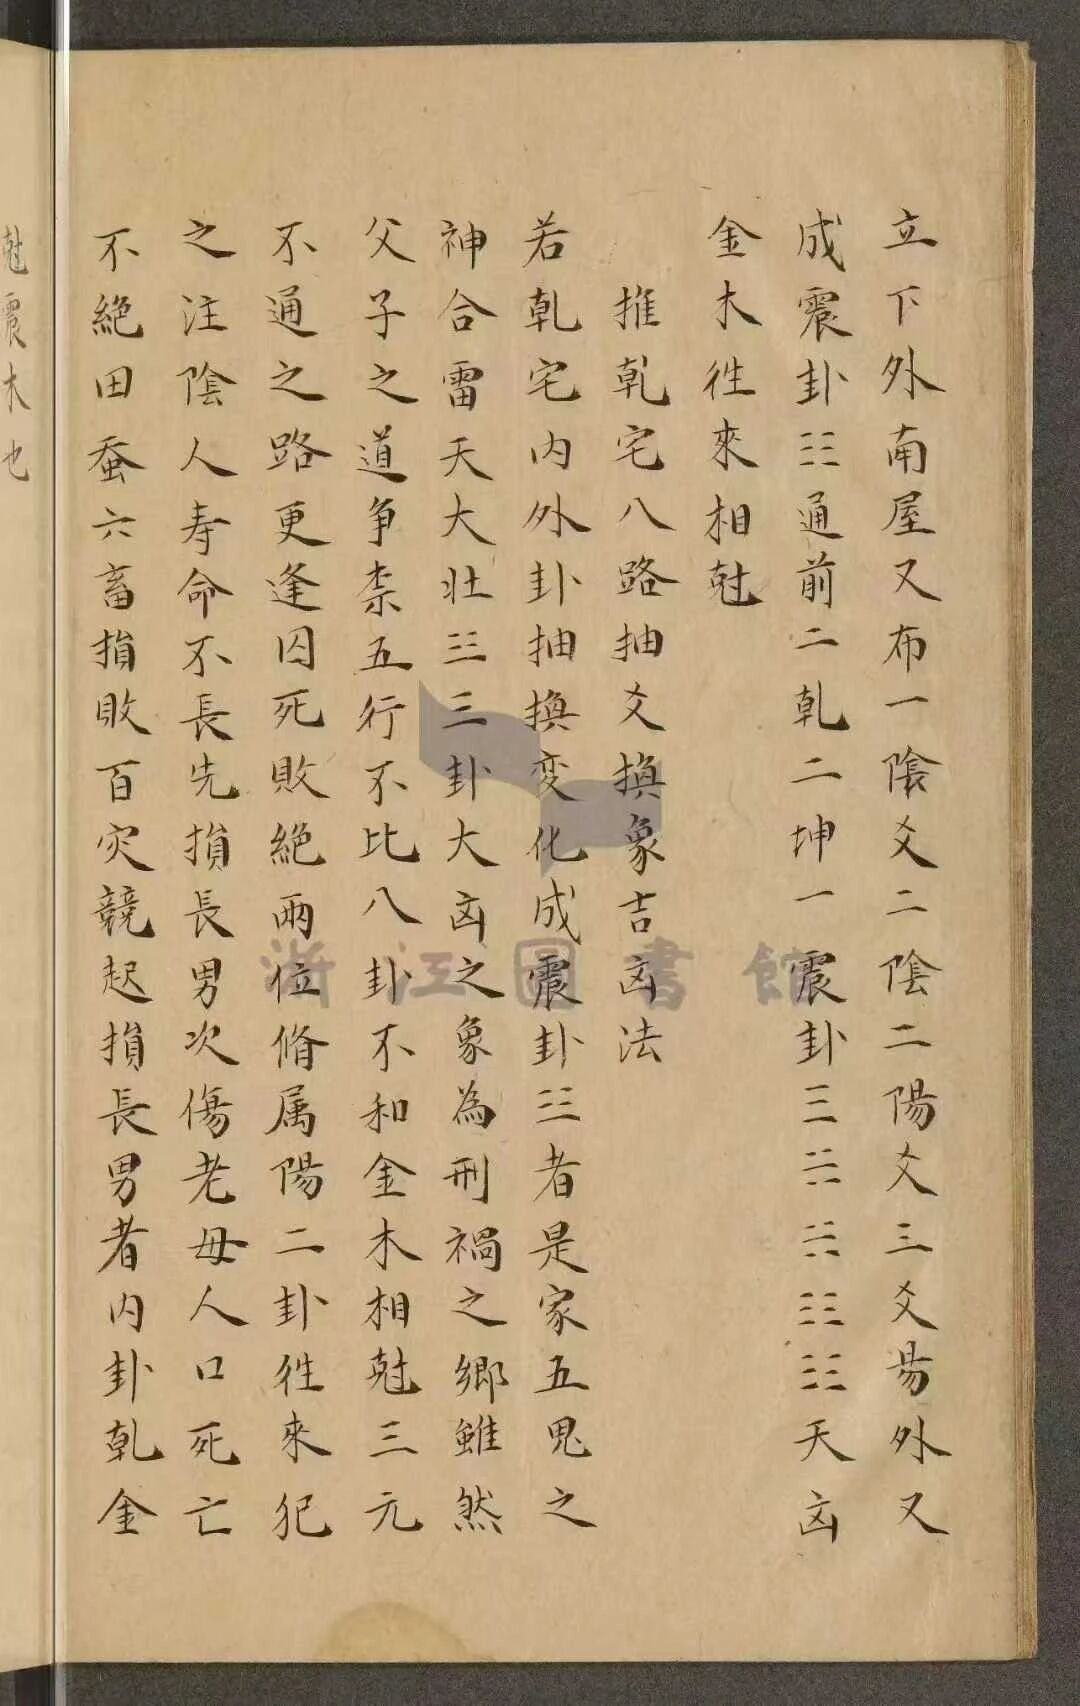 立下外南屋又布一陰爻二陰二陽爻三爻昜外又
成震卦☳通前二乾二坤一震卦☰☷☷☳☳天凶
金木徃來相尅
推乾宅八路抽爻換象吉凶法
若乾宅内外卦抽換変化成震卦☳者是家五鬼之
神合雷天大壮☳☰卦大凶之象為刑禍之鄉雖然
父子之道争柰五行不比八卦不和金木相尅三元
不通之路更逢囚死敗絶兩位脩属陽二卦徃來犯
之注陰人寿命不長先損長男次傷老母人口死亡
不絶田蚕六畜損敗百灾競起損長男者内卦乾金
尅震木也
浙江圖書館